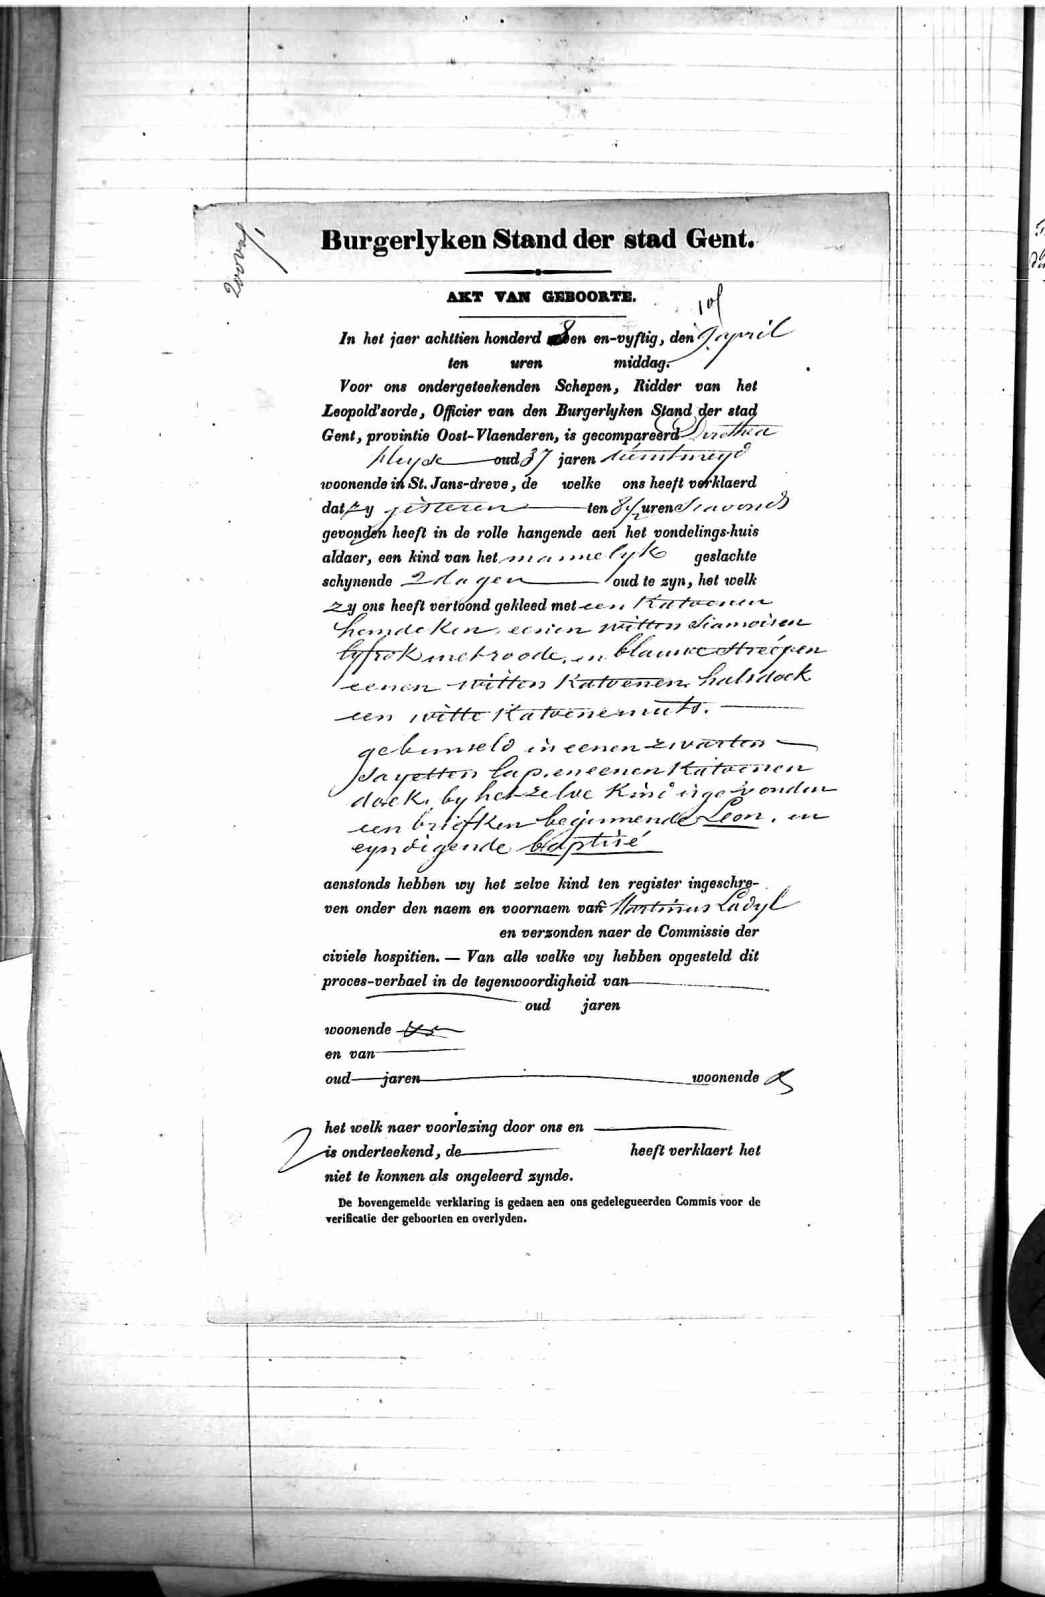 Burgerlyken Stand der stad Gent.
AKT VAN GEBOORTE.
In het jaer achttien honderd 8 en en-vyftig, den 9 april
ten uren middag.
Voor ons ondergeteekenden Schepen, Ridder van het
Leopold'sorde, Officier van den Burgerlyken Stand der stad
Gent, provintie Oost-Vlaenderen, is gecompareerd Dorothea
oud 37 jaren dienstmeyd
woonende in St. Jans-dreve, de welke ons heeft verklaerd
dat zy gisteren ten 8 1/2 uren s'avonds
gevonden heeft in de rolle hangende aen het vondelings-huis
aldaer, een kind van het mannelyk geslachte
schynende 2 dagen oud te zyn, het welk
zy ons heeft vertoond gekleed met een katoenen
hemdeken, eenen witten siamoisen
lyfrok met roode en blauwe streépen
eenen witten katoenen halsdoek
een witte katoene muts.
gebunseld in eenen zwarten
sayetten lap, en eenen katoenen
doek, by het zelve kind is gevonden
een briefken beginnende Leon, en
eyndigende baptisé
aenstonds hebben wy het zelve kind ten register ingeschre-
ven onder den naem en voornaem van Martinus Ladyl
en verzonden naer de Commissie der
civiele hospitien. — Van alle welke wy hebben opgesteld dit
proces-verbael in de tegenwoordigheid van
oud jaren
woonende
en van
oud jaren woonende
het welk naer voorlezing door ons en
is onderteekend, de heeft verklaert het
niet te konnen als ongeleerd zynde.
De bovengemelde verklaring is gedaen aen ons gedelegueerden Commis voor de
verificatie der geboorten en overlyden.